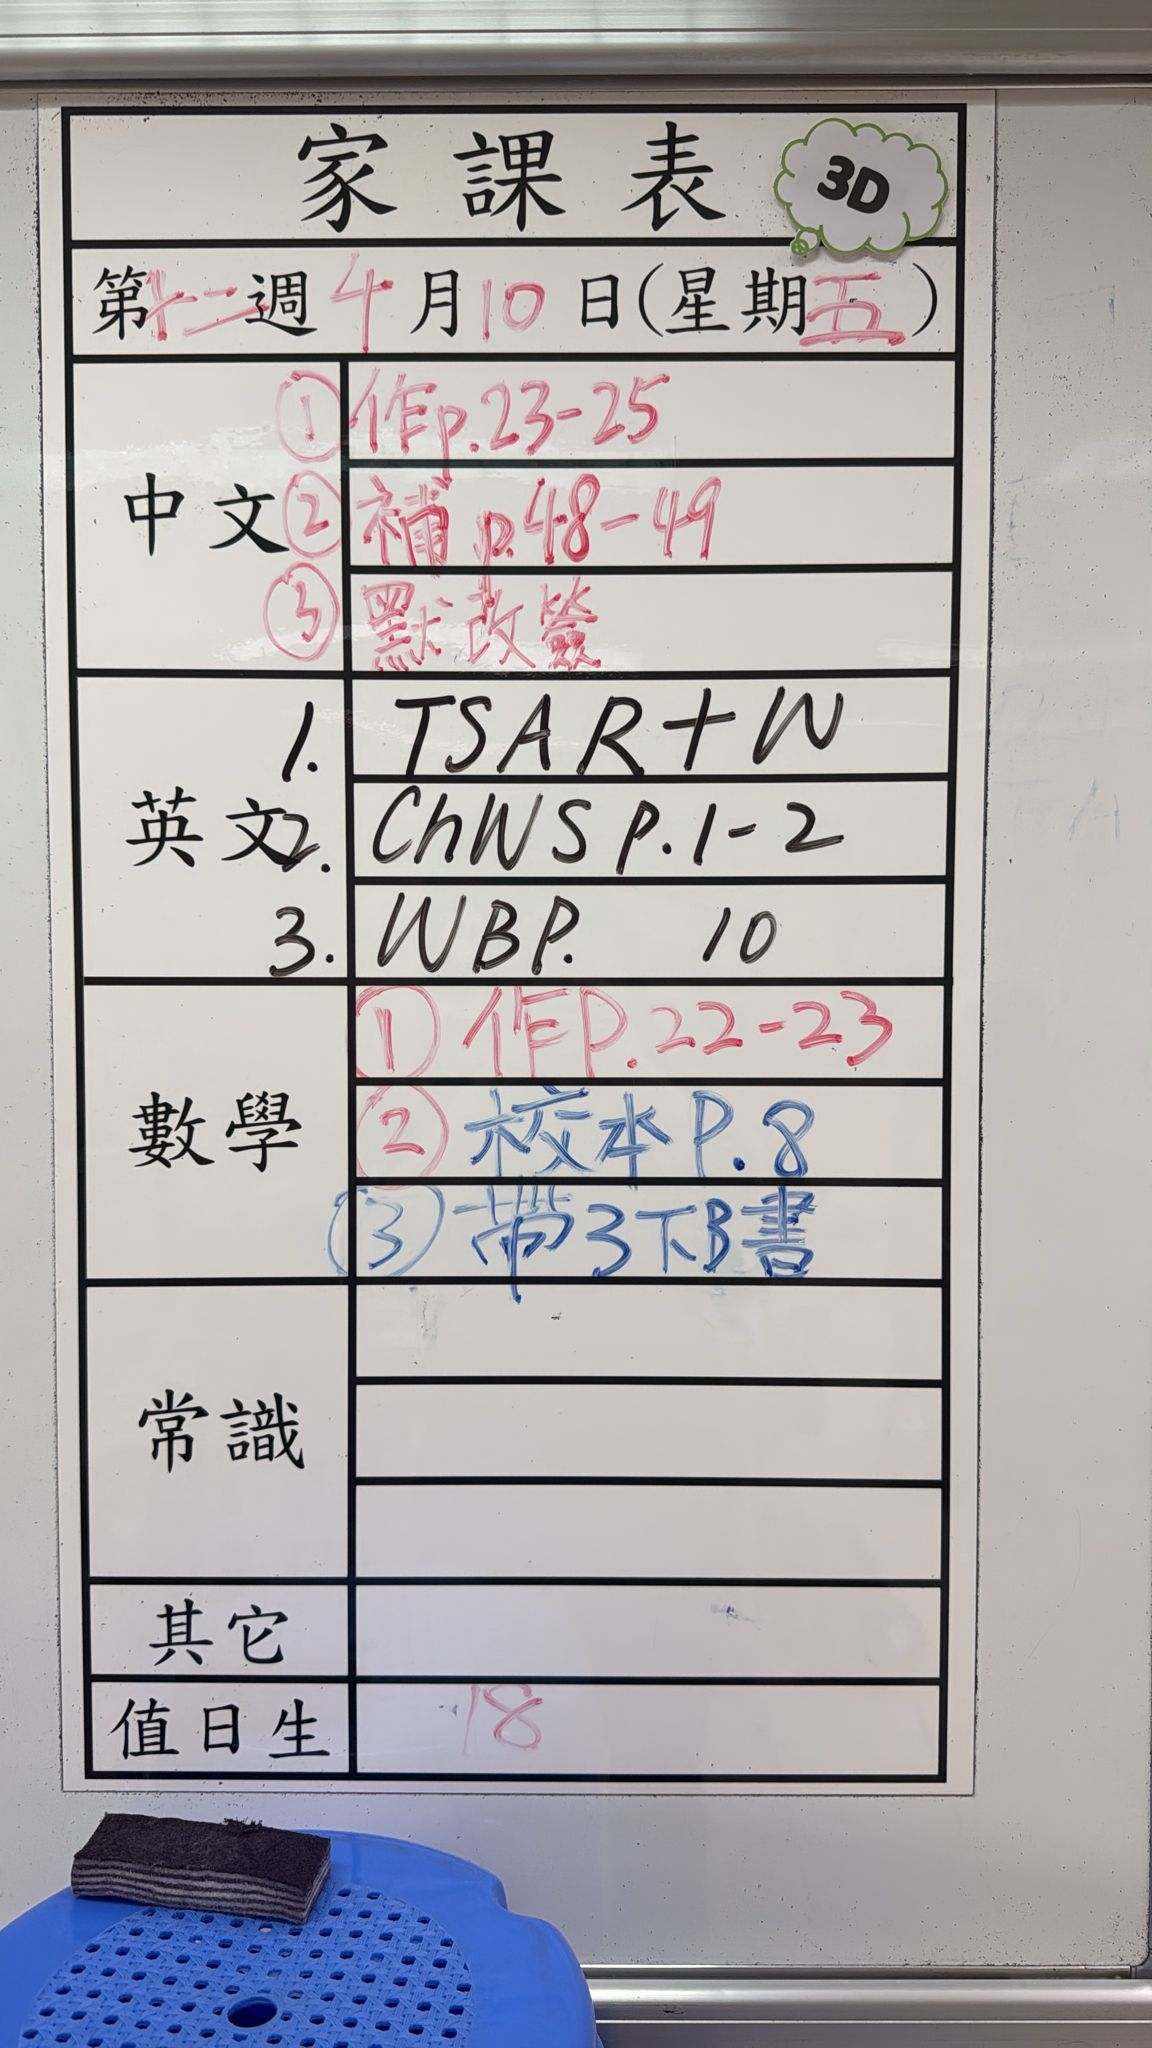 家課表 3D
第十二週 4月10日(星期五)
中文
① 作p.23-25
② 補p.48-49
③ 默改簽
英文
1. TSA R+W
2. ChWS P.1-2
3. WB P. 10
數學
① 作P.22-23
② 校本P.8
③ 帶3下B書
常識
其它
值日生 18